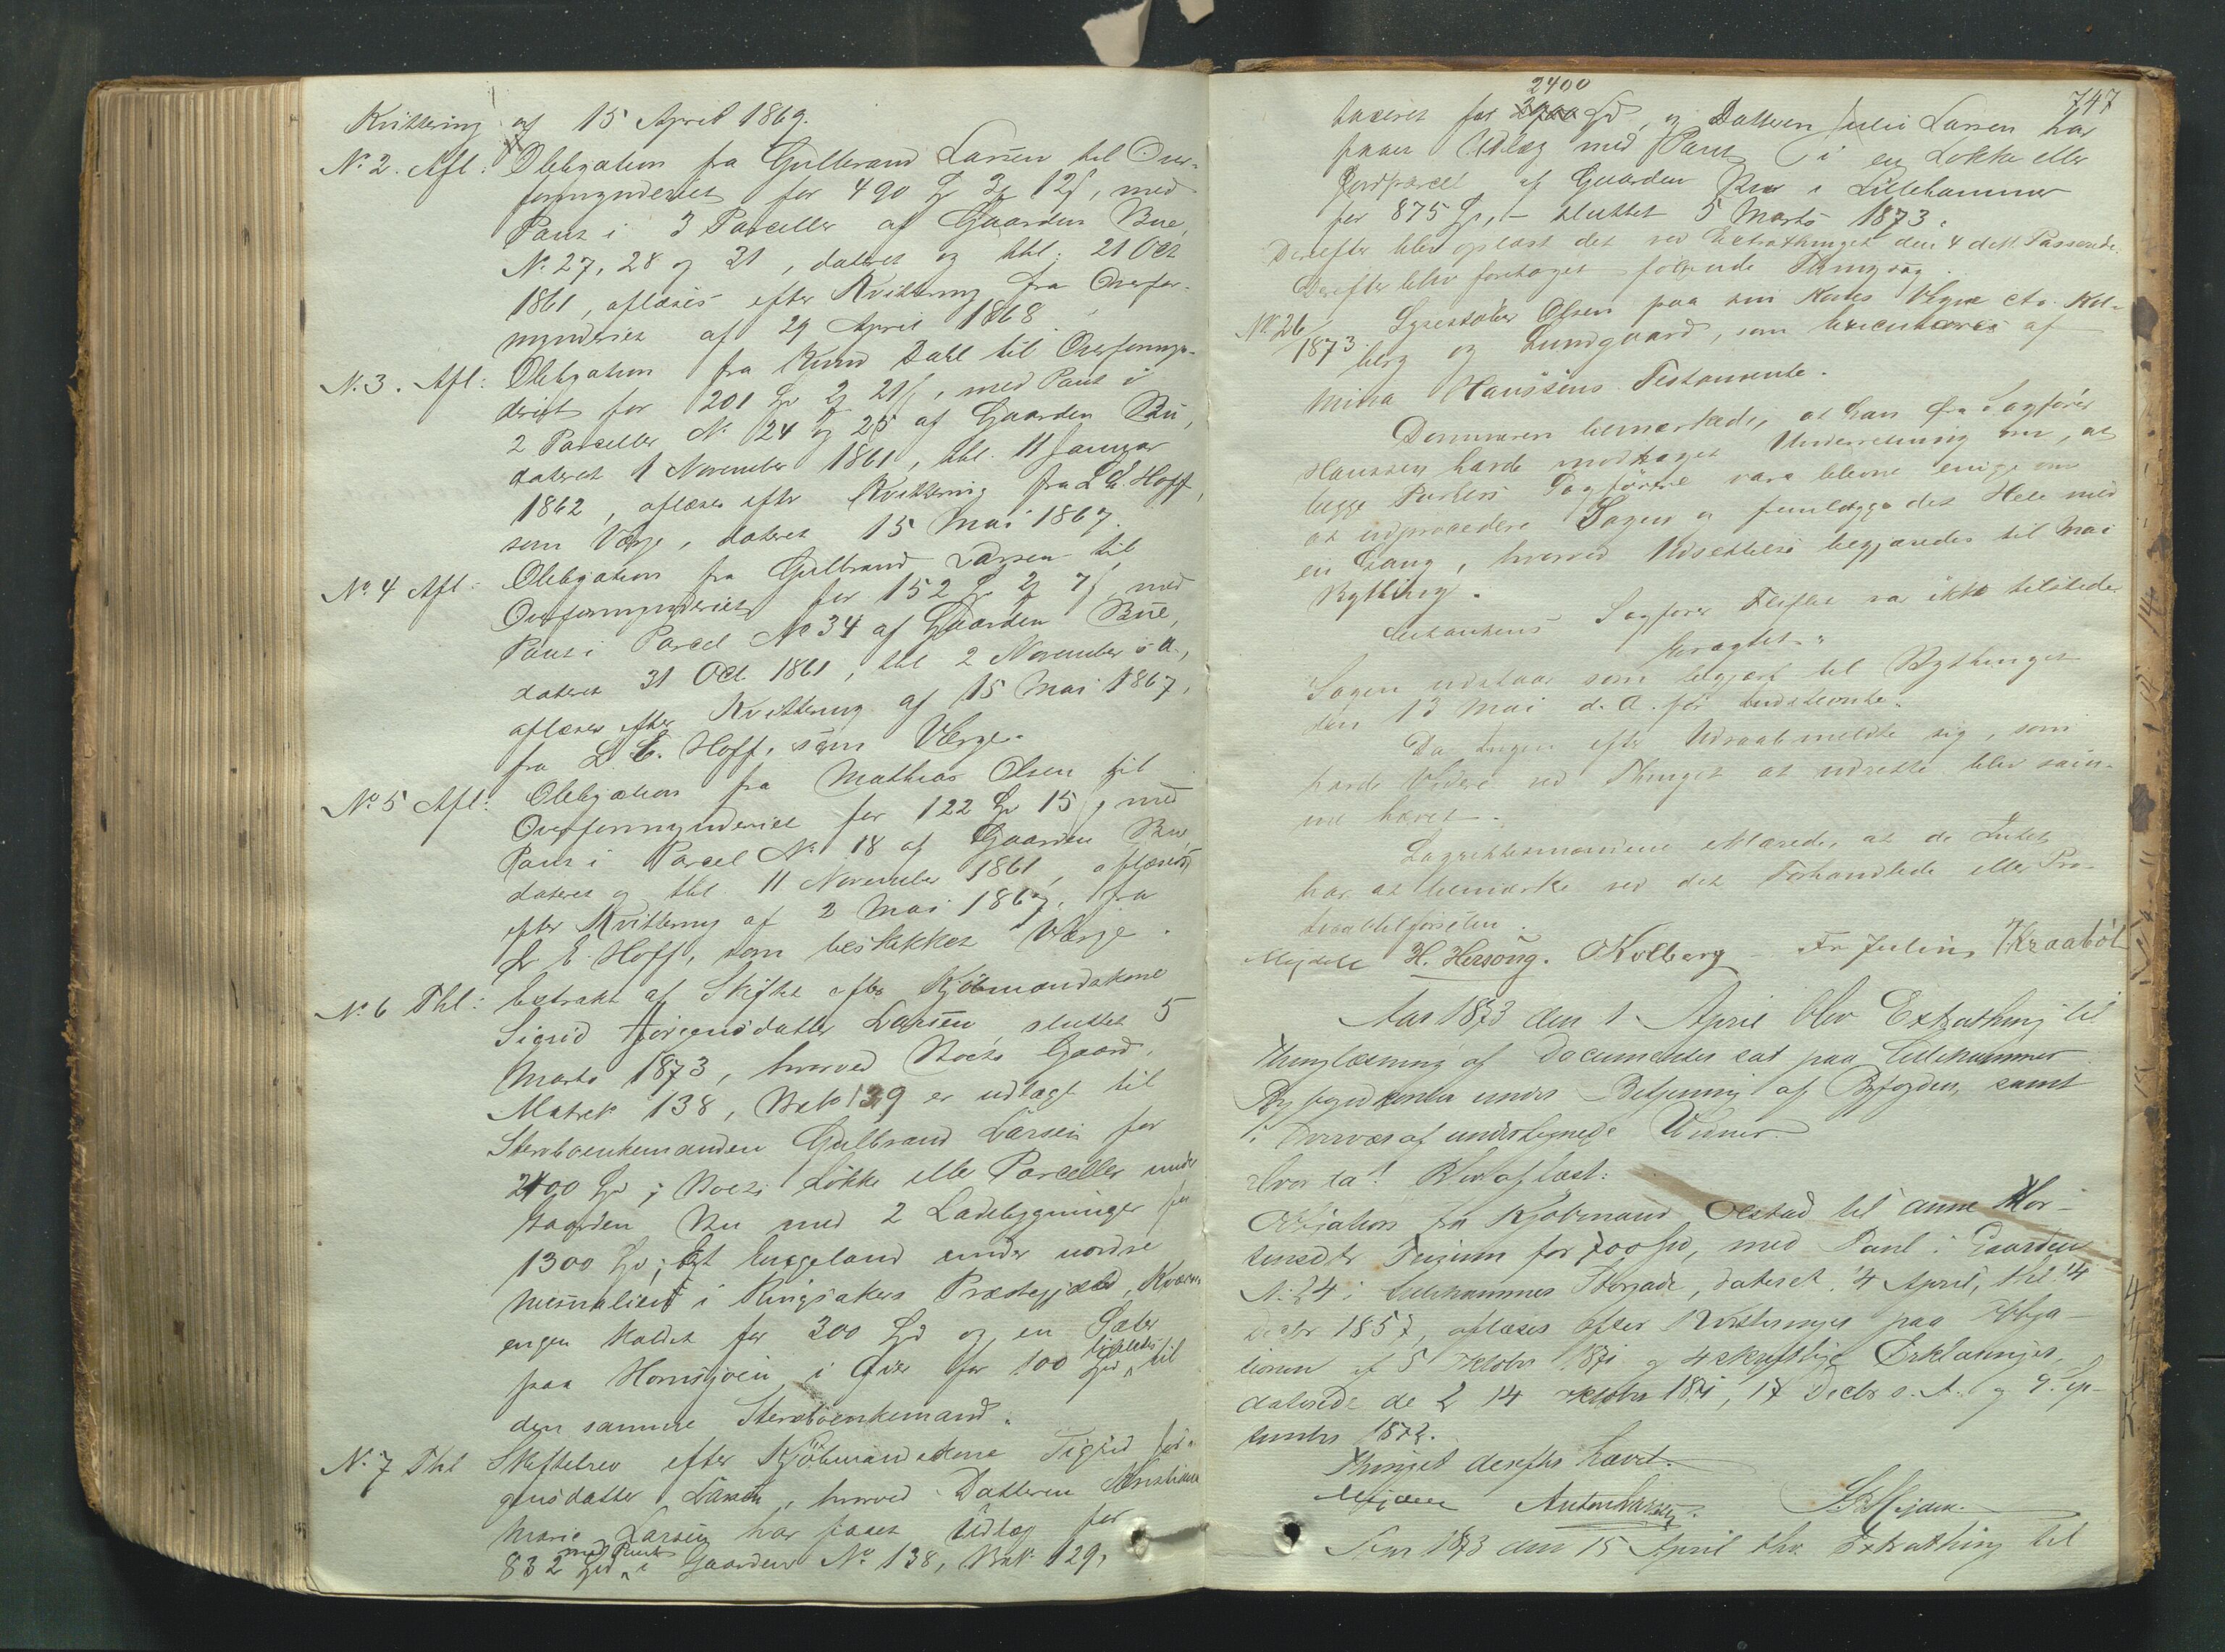 Kvittering af 15 April 1869.
No 2. Afl: Obligation fra Gulbrand Larsen til Over-
formynderiet for 490 Spd 3 12 s, med
Pant i 3 Parceller af Gaarden Bue,
No 27, 28 og 31, dateret og thl: 21 Oct
1861, aflæses efter Kvittering fra Overfor-
mynderiet af 29 April 1868.
No 3. Afl: Obligation fra Knud Dahl til Overformyn-
deriet for 201 Spd 2 21 s, med Pant i
2 Parceller No 24 og 25 af Gaarden Bu,
dateret 1 November 1861, thl. 11 Januar
1862, aflæses efter Kvittering fra L. E. Hoff,
som Værge, dateret 15 Mai 1867.
No 4 Afl: Obligation fra Gulbrand Larsen til
Overformynderiet for 152 Spd 2 7 s, med
Pant i Parcel No 34 af Gaarden Bue,
dateret 31 Oct 1861, thl 2 November s. A.,
aflæses efter Kvittering af 15 Mai 1867,
fra L. E. Hoff, som Værge.
No 5 Afl: Obligation fra Mathias Olsen til
Overformynderiet for 122 Spd 15 s, med
Pant i Parcel No 18 af Gaarden Bue,
dateret og thl 11 November 1861, aflæses
efter Kvittering af 2 Mai 1867, fra
L. E. Hoff, som beskikket Værge.
No 6 Thl: Extrakt af Skiftet efter Kjöbmandskone
Sigrid Jörgensdatter Larsen, sluttet 5
Marts 1873, hvorved Boets Gaard,
Matrk 138, Brk 129 er udlagt til
Sterboenkemanden Gulbrand Larsen for
2400 Spd; Boets Løkke eller Parceller under
Gaarden Bu med 2 Ladebygninger for
1300 Spd; Et Engeland under nordre
i Ringsakers Præstegjæld, Kværn
engen kaldet for 300 Spd og en Sæter
paa Hornsjøen i Øier for 100 Spd ligeledes til
den samme Sterboenkemand.
No 7 Thl Skiftebrev efter Kjöbmandskone Sigrid Jör-
gensdatter Larsen, hvorved Datteren Christiane
Marie Larsen har faaet Udlæg for
832 Spd med Pant i Gaarden No 138, Brk 129,
747
2400
taxeret for Spd, og Datteren Julie Larsen har
faaet Udlæg med Pant i en Løkke eller
Jordparcel af Gaarden Bu i Lillehammer
for 875 Spd, - sluttet 5 Marts 1873.
Derefter blev oplæst det ved Extrathinget den 4 dM. Passerede.
Derefter blev foretaget følgende Thingsag.
No 26/1873. Olsen paa sin Kones Vegne ctr. Kol-
berg og Lundgaard, som Executorer af
Mina Hanssens Testamente.
Dommeren bemærkede, at han fra Sagfører
Hanssen havde modtaget Underretning om, at
begge Parters Sagførere vare blevne enige om
at udprocedere Sagen og fremlægge det Hele med
en Gang, hvorved Udsættelse begjæredes til Mai
Bything.
Citantens Sagfører var ikke tilstede
Eragtet.
Sagen udstaar som begjært til Bythinget
den 13 Mai d. A. for Indstevnte.
Da Ingen efter Udraab meldte sig, som
havde Videre ved Thinget at udrette, blev sam-
me hævet.
Lagrettesmændene erklærede, at de Intet
har at bemærke ved det Forhandlede eller Pro-
tocoltilførselen.
H. Hersoug. O Kolberg Fr Julius Kraabøl
Aar 1873 den 1 April blev Extrathing til
Thinglæsning af Documenter sat paa Lillehammer
Byfogedkontor under Betjening af Byfogden, samt
i Overvær af undertegnede Vidner.
Hvor da! Blev aflæst:
Obligation fra Kjøbmand Olstad til Anne Mor-
tensdtr for 700 Spd, med Pant i Gaarden
No 24 i Lillehammers Storgade, dateret 4 April, thl. 14
Decbr 1857, aflæses efter Kvitteringer paa Obliga-
tionen af 5 Oktober 1871 og 4 skriftlige Erklæringer,
daterede de 2 14 Oktober 1871, 17 Decbr s. A. og 9. Sep-
tember 1872.
Thinget derefter hævet.
Anton Larssen.
Aar 1873 den 15 April blev Extrathing til